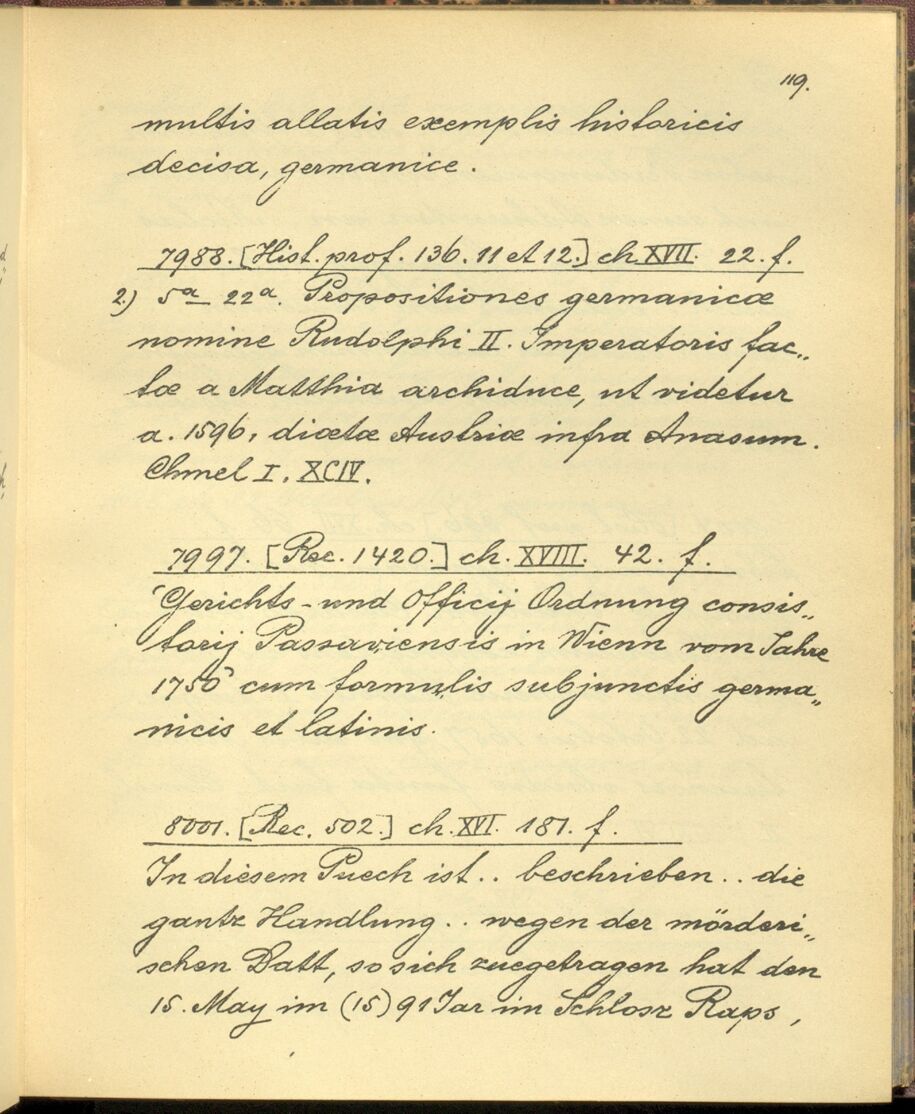 119.
multis allatis exemplis historicis
decisa, germanice.
7988. [Hist. prof. 136. 11 et 12.] ch XVII. 22. f.
2.) 5a 22a. Propositiones germanicæ
nomine Rudolphi II. Imperatoris fac„
tæ a Matthia archiduce, ut videtur
a. 1596, diætæ Austriæ infra Anasum.
Chmel I. XCIV.
7997. [Rec. 1420.] ch. XVIII. 42. f.
Gerichts- und Officij Ordnung consis„
torij Passaviensis in Wienn vom Jahre
1750 cum formulis subjunctis germa„
nicis et latinis.
8001. [Rec. 502.] ch. XVI. 181. f.
In diesem Puech ist .. beschrieben .. die
gantz Handlung .. wegen der mörderi„
schen Datt, so sich zuegetragen hat den
15. May im (15)91 Jar im Schlosz Raps,